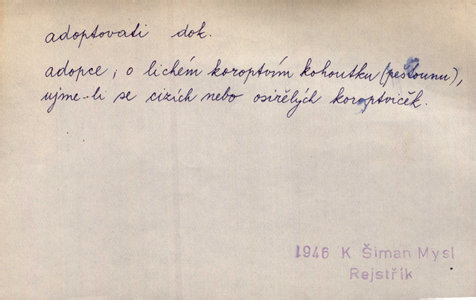 adoptovati dok.
adopce; o lichém koroptvím kohoutku (pěstounu),
ujme-li se cizích nebo osiřělých koroptviček.
1946 K Šiman Mysl
Rejstřík